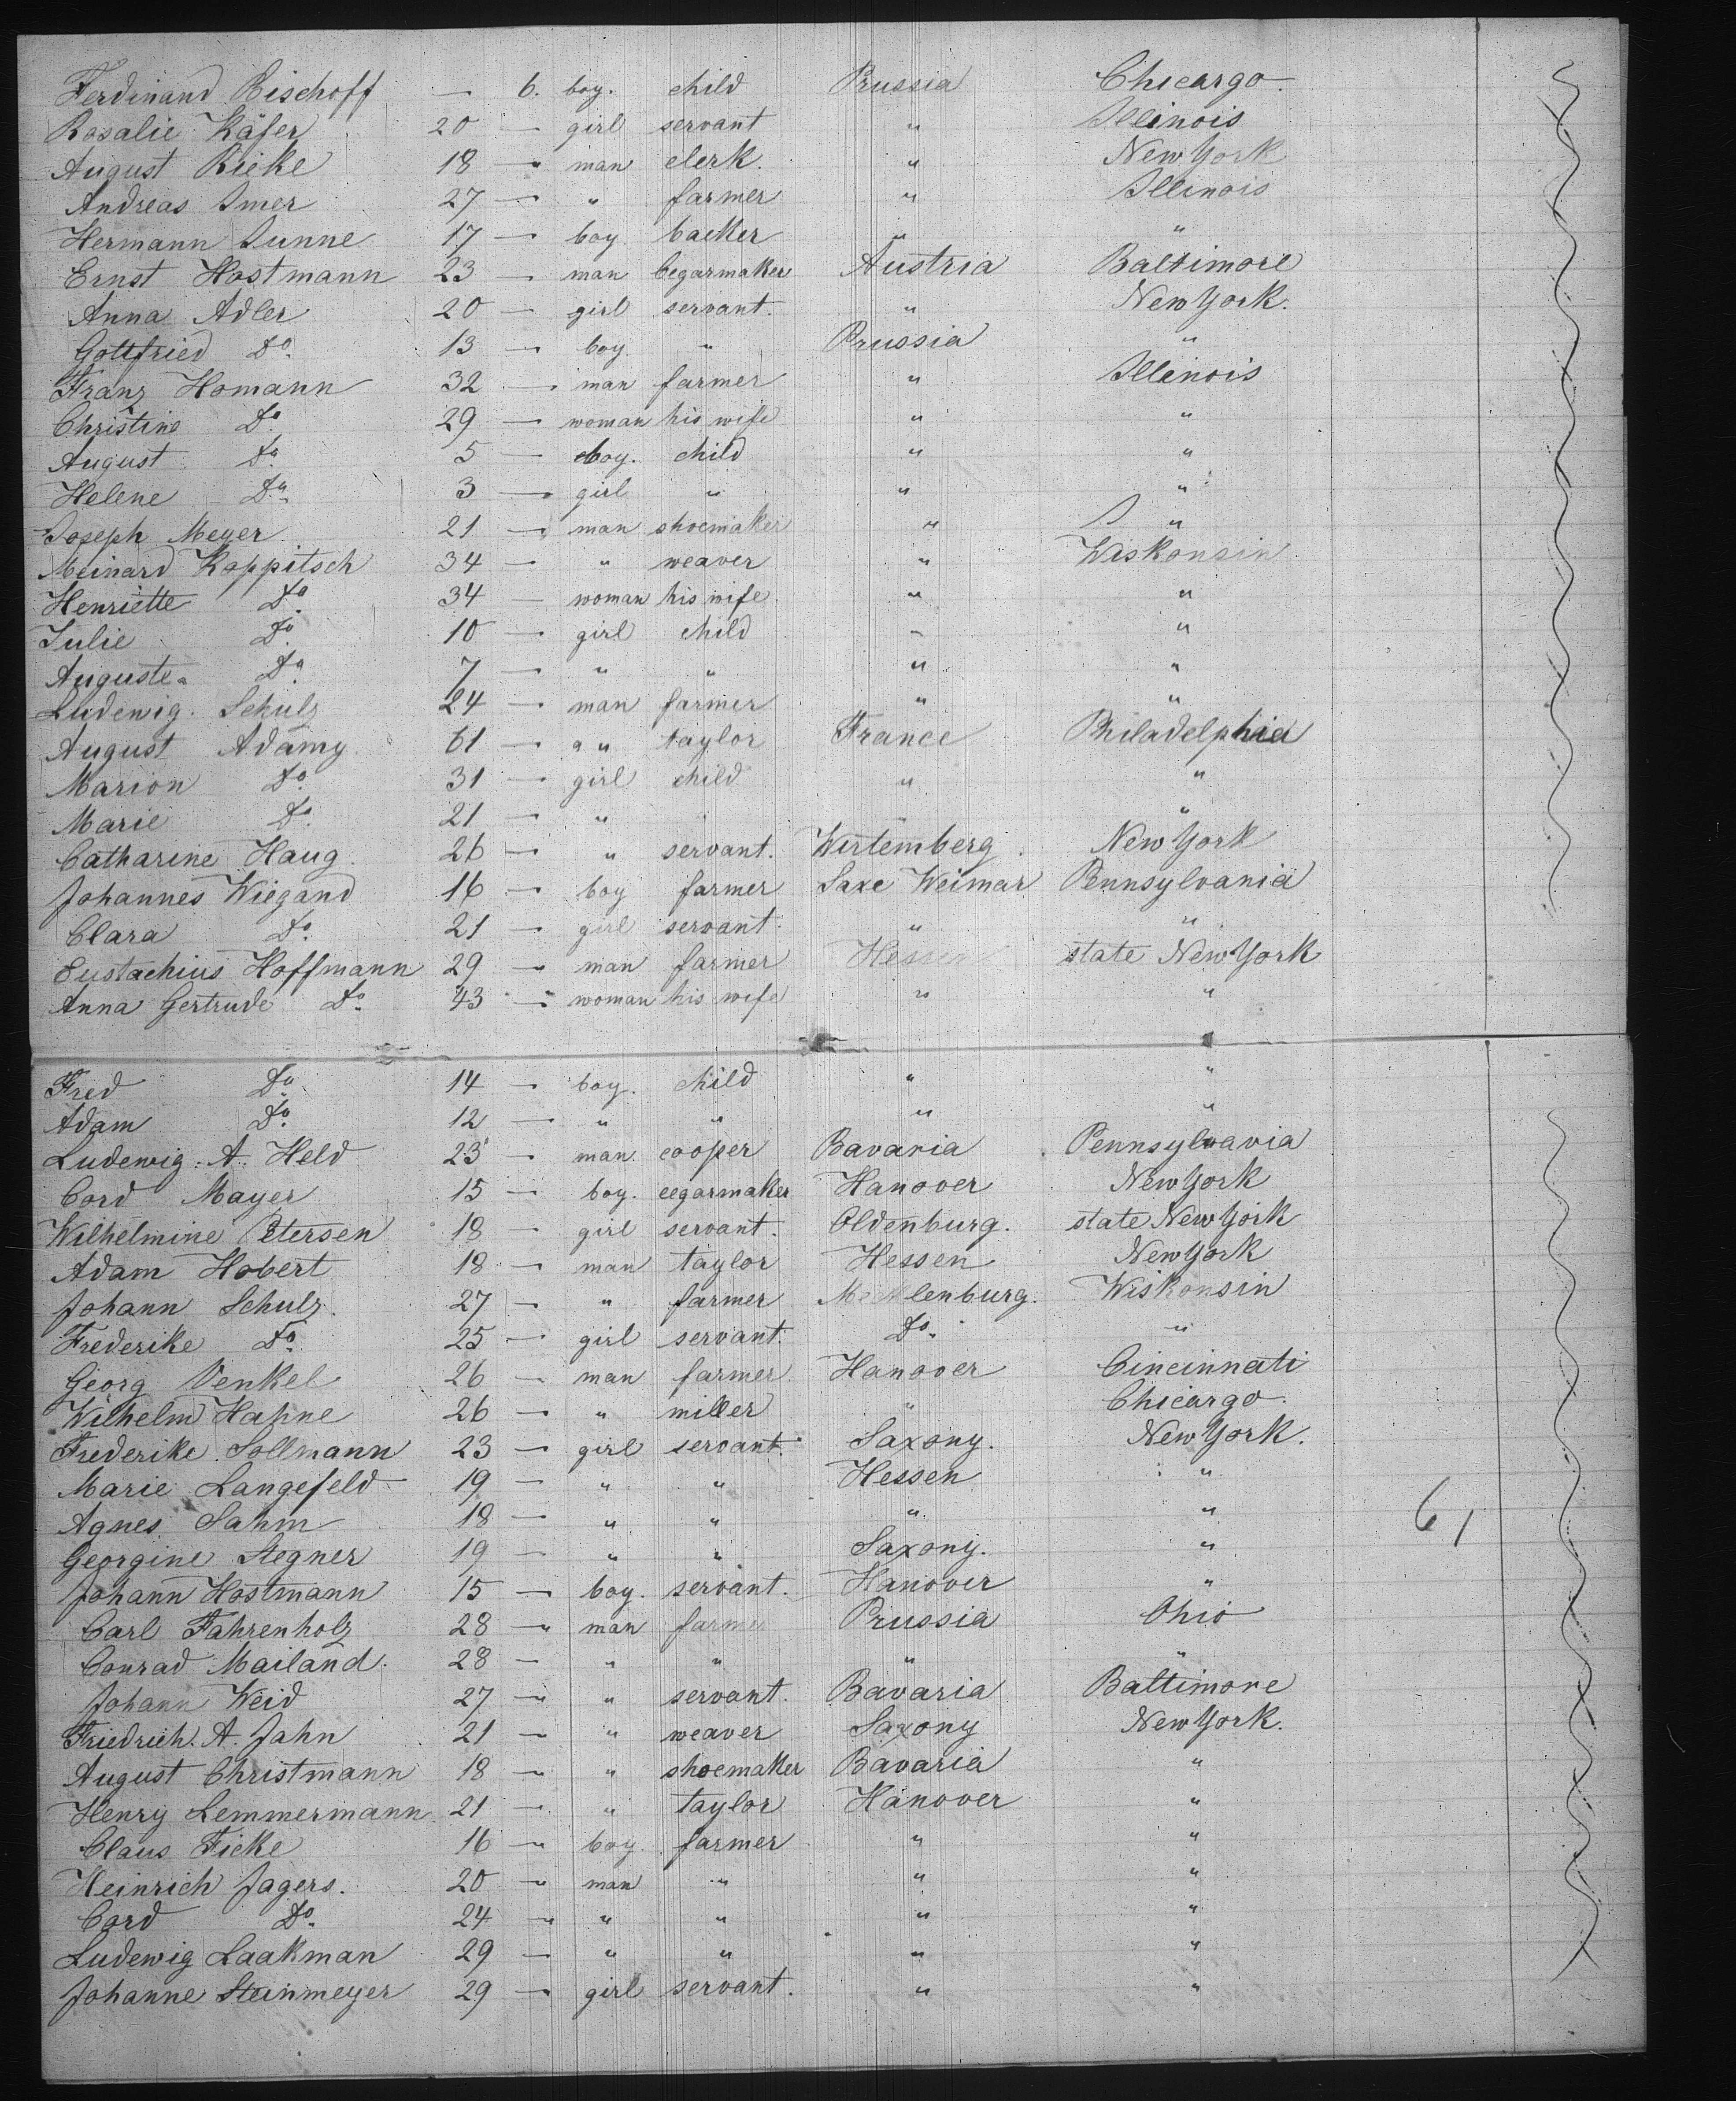 Ferdinand Bischoff — 6. boy. child Prussia Chicargo.
Rosalie Käfer 20 — girl servant " Illinois
August Rieke 18 — man clerk. " New York
Andreas Imer 27 — " farmer " Illinois
Hermann Sunne 17 — boy backer " "
Ernst Hostmann 23 — man cegarmaker Austria Baltimore
Anna Adler 20 — girl servant. " New York.
Gottfried Do. 13 — boy. " Prussia "
Franz Homann 32 — man farmer " Illinois
Christine Do. 29 — woman his wife " "
August Do. 5 — boy. child " "
Helene Do. 3 — girl " " "
Joseph Meyer 21 — man shoemaker " "
Meinard Koppitsch 34 — " weaver " Wiskonsin
Henriette Do. 34 — woman his wife " "
Julie Do. 10 — girl child " "
Auguste Do. 7 — " " " "
Ludewig. Schulz 24 — man farmer " "
August Adamy 61 — " " taylor France Philadelphia
Marion Do. 31 — girl child " "
Marie Do. 21 — " " " "
Catharine Haug 26 — " servant. Wirtemberg New York
Johannes Wiegand 16 — boy farmer Saxe Weimar Pennsylvania
Clara Do. 21 — girl servant. " "
Eustachius Hoffmann 29 — man farmer Hessen state New York
Anna Gertrude Do. 43 — woman his wife " "
Fred Do. 14 — boy. child " "
Adam Do. 12 — " " " "
Ludewig. A. Held 23 — man. cooper Bavaria Pennsylvavia
Cord Mayer 15 — boy. cegarmaker Hanover New York
Wilhelmine Petersen 18 — girl servant. Oldenburg. state New York
Adam Hobert 18 — man taylor Hessen New York
Johann Schulz. 27 — " farmer Mecklenburg. Wiskonsin
Frederike Do. 25 — girl servant. Do. "
Georg Venkel 26 — man farmer Hanover Cincinnati
Wilhelm Hahne 26 — " miller " Chicargo.
Frederike Sollmann 23 — girl servant. Saxony. New York.
Marie Langefeld 19 — " " Hessen "
Agnes Sahm 18 — " " " " 61
Georgine Stegner 19 — " " Saxony. "
Johann Hostmann 15 — boy. servant. Hanover "
Carl Fahrenholz 28 — man farmer Prussia Ohio
Conrad Mailand. 28 — " " " "
Johann Weid 27 — " servant. Bavaria Baltimore
Friedrich. A. Jahn 21 — " weaver Saxony New York.
August Christmann 18 — " shoemaker Bavaria "
Henry Lemmermann 21 — " taylor Hanover "
Claus Ficke 16 — boy farmer " "
Heinrich Jagers. 20 — man " " "
Cord Do. 24 — " " " "
Ludewig Laakman 29 — " " " "
Johanne Steinmeyer 29 — girl servant. " "